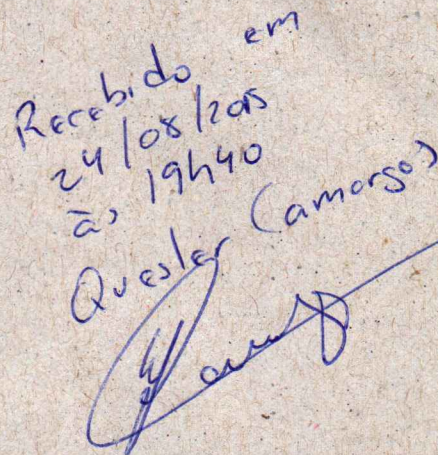 Recebido em
24/08/2015
às 19h40
Quesler Camargos